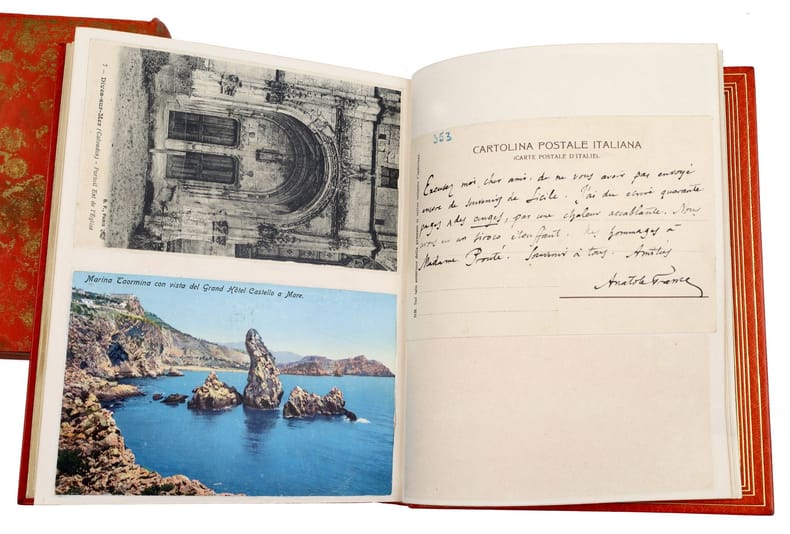 7 – Dives-sur-Mer (Calvados) – Portail Est de l'Eglise
B. F., Paris
Marina Taormina con vista del Grand Hôtel Castello a Mare.
353
CARTOLINA POSTALE ITALIANA
(CARTE POSTALE D'ITALIE).
Excusez moi, cher ami, de ne vous avoir pas envoyé
encore de souvenirs de Sicile. J'ai du écrire quarante
pages des anges, par une chaleur accablante. Nous
un siroco étouffant. Mes hommages à
Madame Souvenir à tous. Amitiés
Anatole France